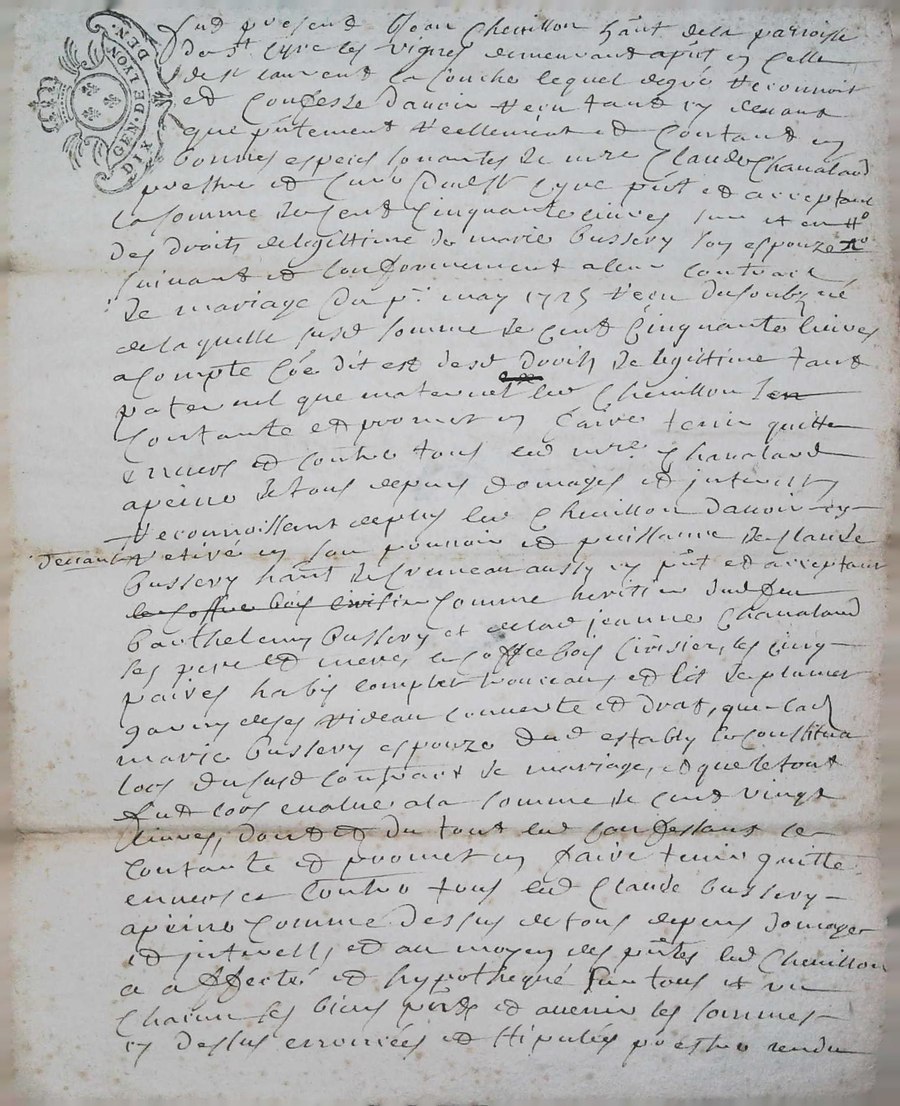 GEN. DE LYON
DIX DEN.
fut present Jean Chevillon hant de la parroisse
de st Cyre les vignes demeurant a pnt en celle
de st laurent la Conche lequel de gré reconnoit
et Confesse d'avoir reçu tant cy devant
que pntement reellement et Contant en
bonnes especes sonantes de mre Claude Chanaland
prestre et Curé dud st Cyre pnt et acceptant
la somme de Cent Cinquante livres sur et en
des droits de legittime de marie bussery son espouze
suivant et Conformement a leur Contract
de mariage du pr may 1725 reçu du soubzné
de laquelle susd somme de Cent Cinquante livres
a Compte Coe dit est desd droits de legittime tant
paternel que maternel led Chevillon sen
Contante et promet en faire tenir quitte
envers et contre tous led mre Chanaland
a peine de tous depens domages et interests
reconnoissant de plus led Chevillon d'avoir cy
devant retiré en son pouvoir et puissance de Claude
bussery hant de aussy cy pnt et acceptant
le coffre bois Comme heritier dud feu
Barthelemy bussery et de lad jeanne Chanaland
ses pere et mere le coffre bois Cirisier, les cinq
paires habis complet trousseaux et lit de plumes
garny de ses rideau couverte et drat, que lad
marie bussery espouze dud estably se Constitua
lors du susd Contract de mariage, et que le tout
fut lors evalué a la somme de Cent vingt
livres, dont et du tout led Confessant se
Contante et promet en faire tenir quitte
envers et Contre tous led Claude bussery
a peine Comme dessus de tous depens domages
et interests, et au moyen des pntes led Chevillon
a affecté et hypothequé sur tous et un
Chacun ses biens pnts et avenir les sommes
cy dessus enoncées et stipulés pour estre rendu